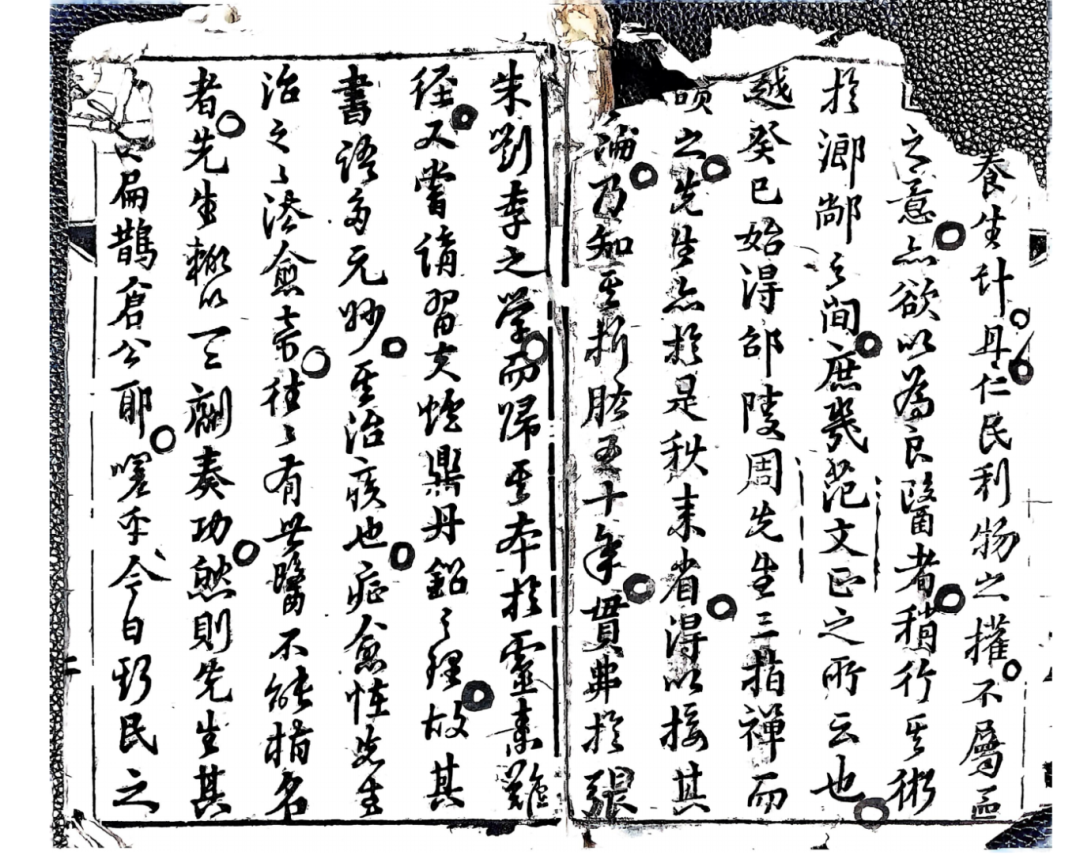 養生計丹仁民利物之權不屬區
之意亦欲以為良醫者稍行其術
於鄉鄰之間庶幾范文正之所云也
越癸巳始得邵陵周先生三指禪而
頌之先生亦於是秋來省得以接其
論乃知其折肱五十年貫弗於張
朱劉李之學而歸其本於靈素難
徑又嘗講習夫爐鼎丹鉛之理故其
書語多元妙其治疾也症愈怪先生
治之之法愈奇往往有世醫不能指名
者先生輒以一二劑奏功然則先生其
扁鵲倉公耶嗟乎今日民之